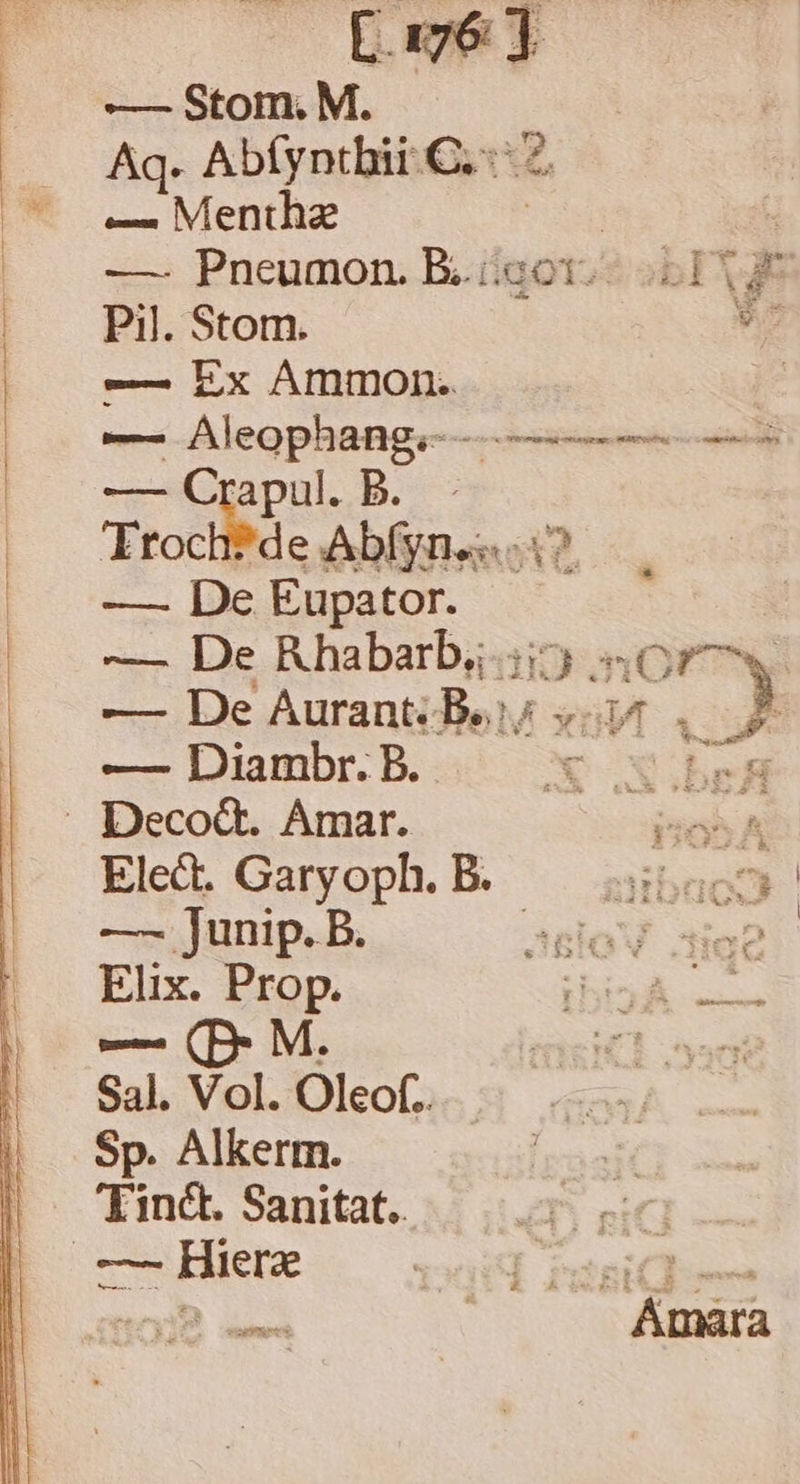 [ 176 ]
— Stom. M.
Aq. Abſynthii C.
— Menthæ
— Pneumon. B.
Pil. Stom.
— Ex Ammon.
— Aleophang.
— Crapul. B.
Troch. de Abſyn.
— De Eupator.
— De Rhabarb.
— De Aurant. B.
— Diambr. B.
Decoct. Amar.
Elect. Garyoph. B.
— Junip. B.
Elix. Prop.
— M.
Sal. Vol. Oleoſ.
Sp. Alkerm.
Tinct. Sanitat.
— Hieræ
Amara